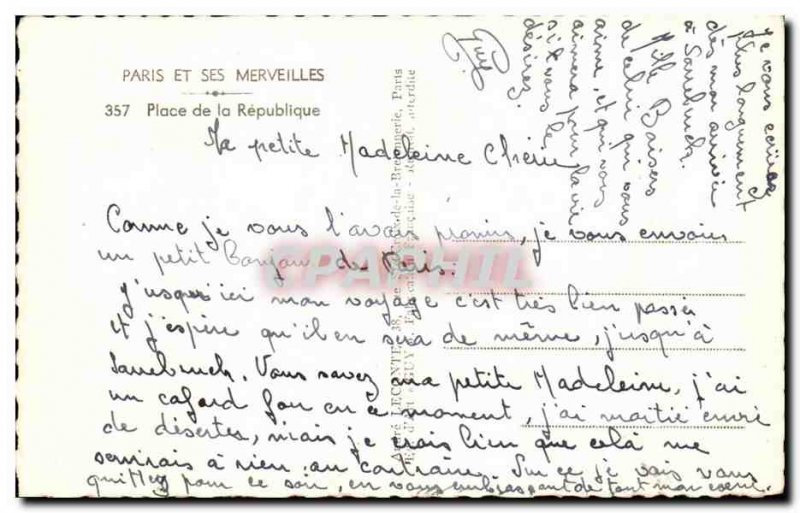 PARIS ET SES MERVEILLES
357 Place de la République
Ma petite Madeleine Chérie
Comme je vous l'avais promis, je vous envoie
un petit Bonjour de Paris.
J'usqu'ici mon voyage c'est très bien passé
et j'espère qu'il en sera de même, j'usqu'à
Sarrebruck. Vous savez ma petite Madeleine, j'ai
un cafard fou en ce moment, j'ai moitié envie
de désertes, mais je crois bien que celà me
servirais à rien au contraire. Sur ce je vais vous
quittez pour ce soir, en vous embrassant de tout mon coeur.
Je vous écrirai
plus longuement
dès mon arrivée
à Sarrebruck.
Mille Baisers
de celui qui vous
aime, et qui vous
aimera pour la vie
si vous le
désirez.
Guy
LECONTE, 38, Croix-de-la-Bretonnerie, Paris
GUY
CPAPHIL